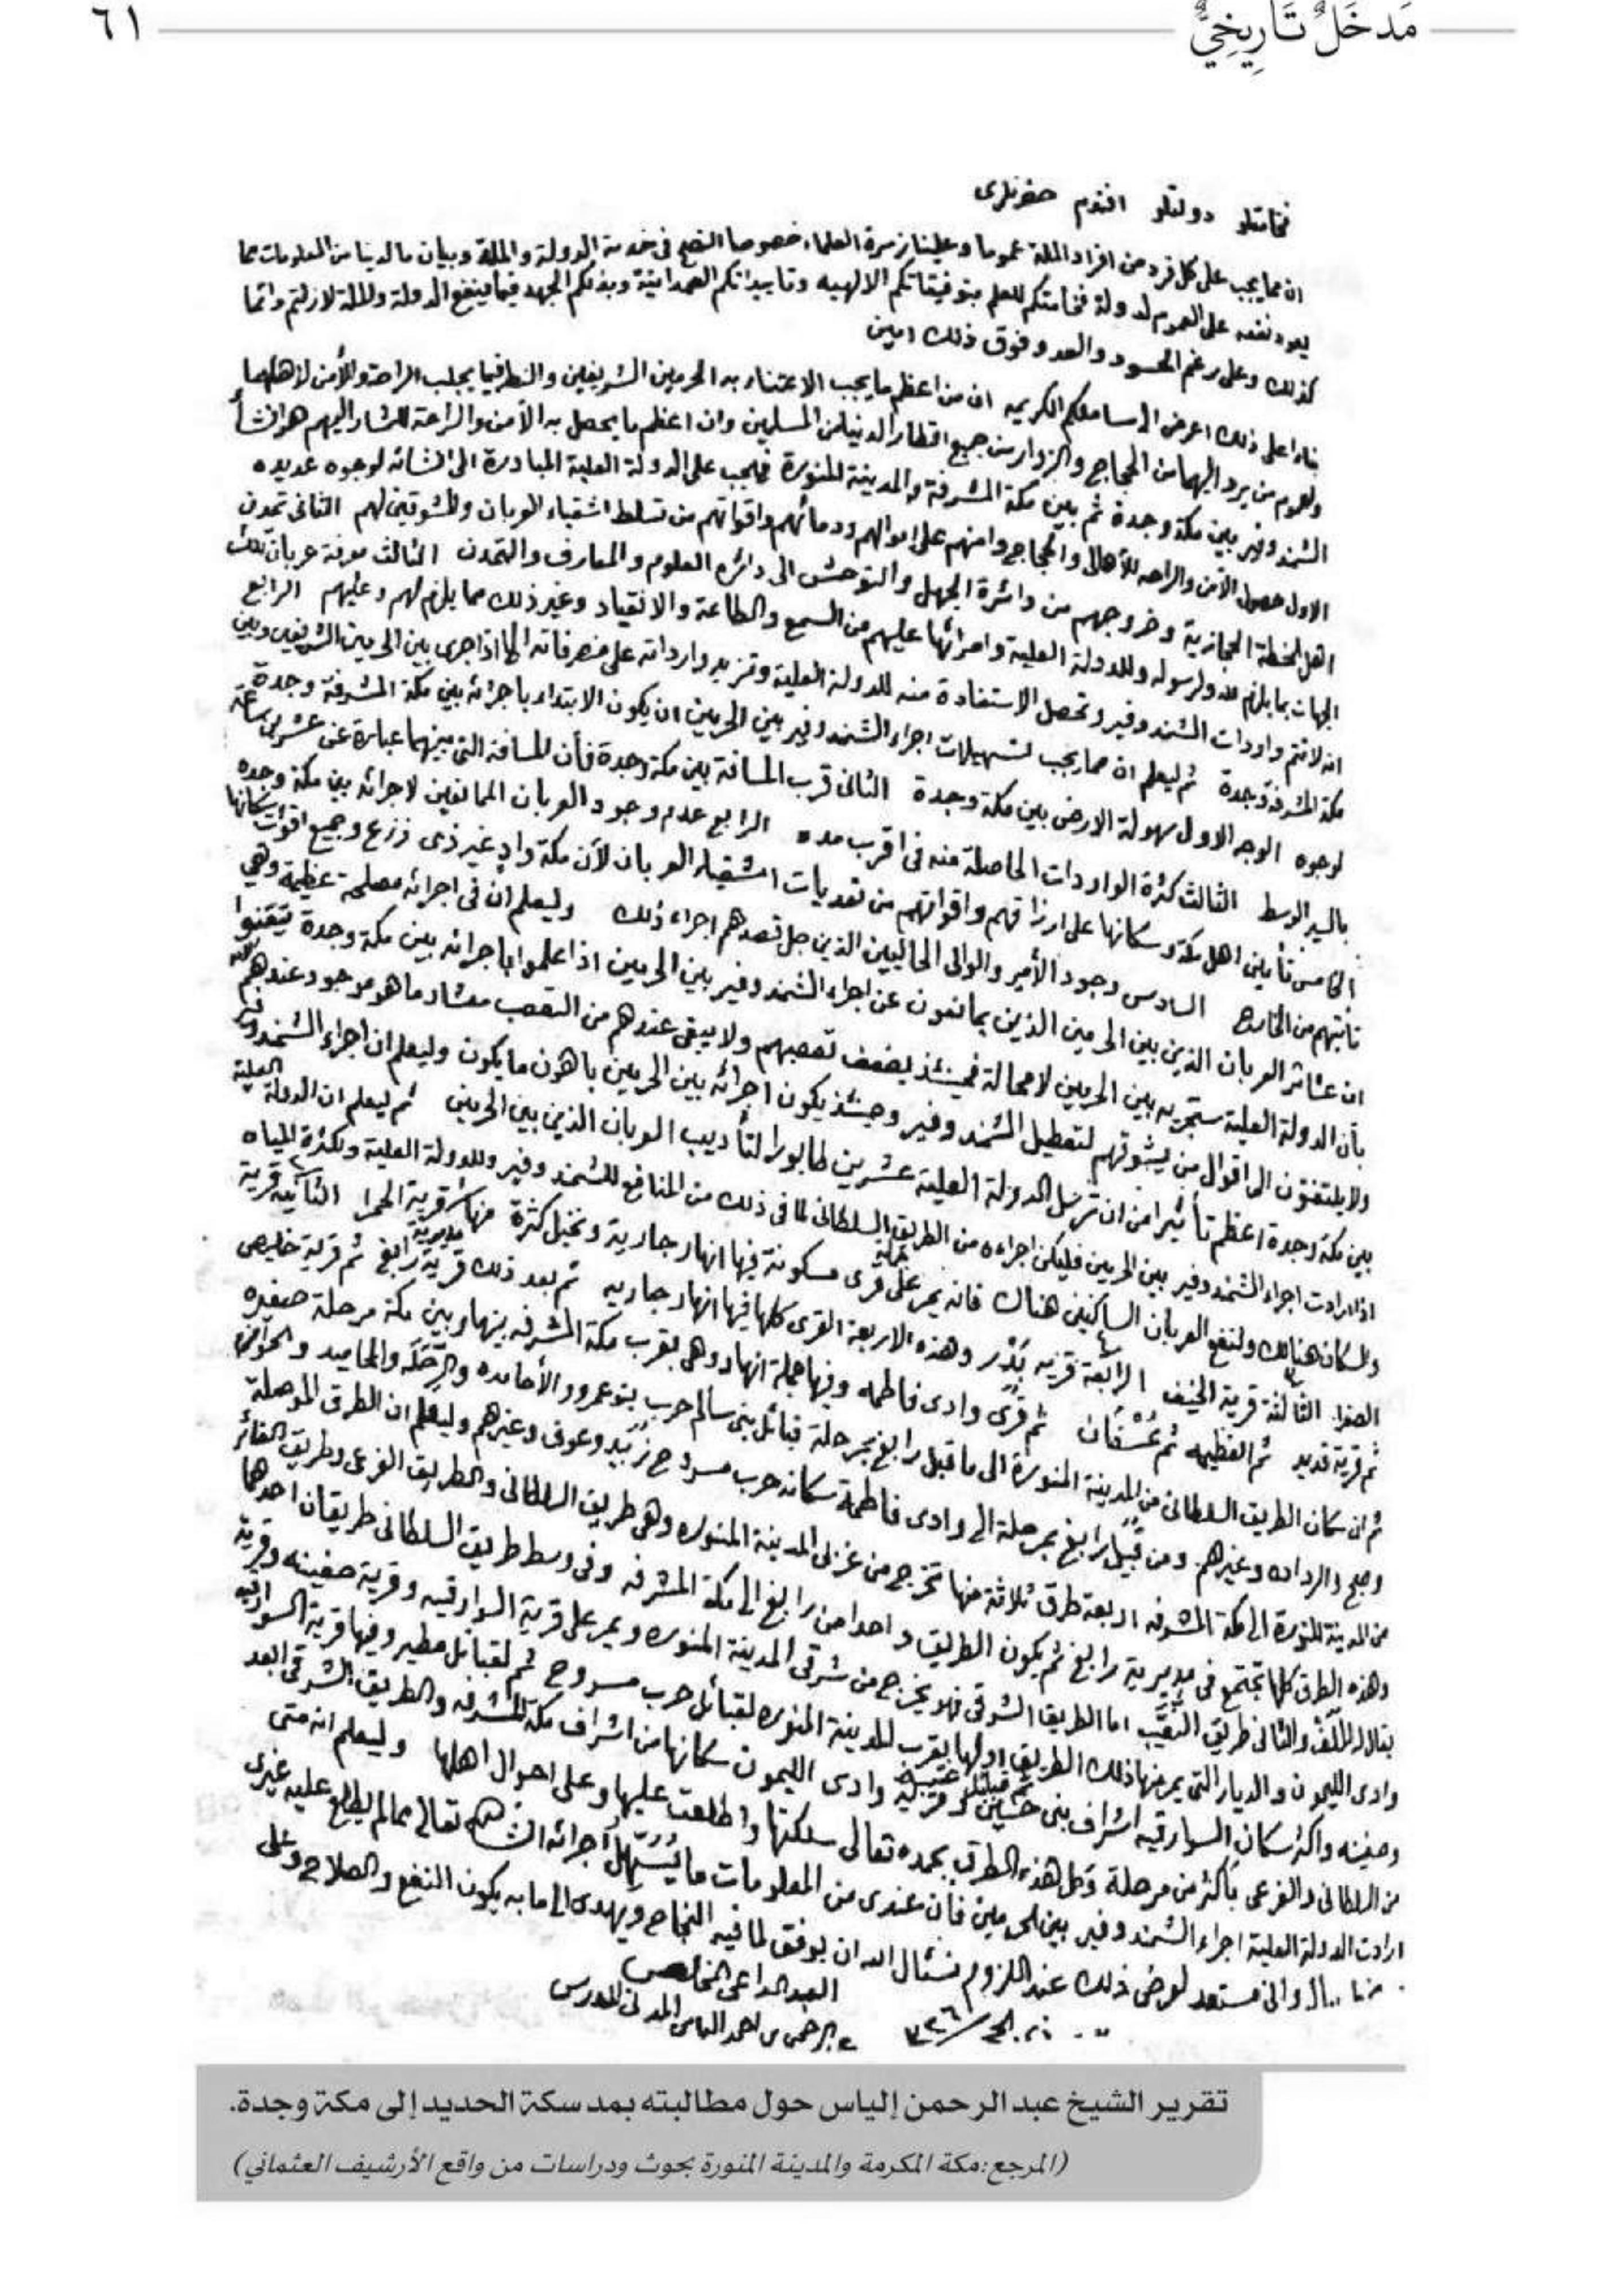 مَدخَلٌ تَارِيخِيٌّ
٦١
فخامتلو دولتلو افندم حضرتلرى
ان مما يجب على كل فرد من افراد الملة عموما وعلينا زمرة العلماء خصوصا النصح فى خدمة الدولة والملة وبيان ما لدينا من المعلومات مما
يعود نفعه على العموم لدولة فخامتكم للعلم بتوفيقاتكم الالهيه وتاييداتكم الصمدانية وبذلكم الجهد فيما ينفع الدولة والملة لازلتم دائما
كذلك وعلى رغم الحسود والعدو فوق ذلك امين
بناء على ذلك اعرض الى مسامعكم الكريمه ان من اعظم ما يجب الاعتناء به الحرمين الشريفين والنظر فيما يجلب الراحة والأمن لأهلهما
ولعموم من يرد اليهما من الحجاج والزوار من جميع اقطار الدنيا من المسلمين وان اعظم ما يحصل به الأمن والراحة للمشار اليهم هو انشأ
الشمندوفير بين مكة وجدة ثم بين مكة المشرفة والمدينة المنورة فيجب على الدولة العلية المبادرة الى انشائه لوجوه عديده
الاول حصول الأمن والراحه للأهالى والحجاج وامنهم على اموالهم ودمائهم واقواتهم من تسلط اشقياء العربان والمشوقين لهم الثانى تمدن
اهل الخطة الحجازية وخروجهم من دائرة الجهل والتوحش الى دائره العلوم والمعارف والتمدن الثالث معرفة عربان تلك
الجهات بما يلزم لله ولرسوله وللدولة العلية وامرائها عليهم من السمع والطاعة والانقياد وغير ذلك مما يلزم لهم وعليهم الرابع
انه لا تتم واردات الشمندوفير وتحصل الاستفادة منه للدولة العلية وتزيد وارداته على مصرفاته الا اذا جرى بين الحرمين الشريفين وبين
مكة المشرفة وجدة ثم ليعلم ان مما يجب لتسهيلات اجراء الشمندوفير بين الحرمين ان يكون الابتداء باجرائه بين مكة المشرفة وجدة
لوجوه الوجه الاول سهولة الارض بين مكة وجدة الثانى قرب المسافة بين مكة وجدة فأن المسافة التى بينهما عبارة عن عشرين ساعة
بالسير الوسط الثالث كثرة الواردات الحاصلة منه فى اقرب مده الرابع عدم وجود العربان الممانعين لاجرائه بين مكة وجده
الخامس تأمين اهل مكة وسكانها على ارزاقهم واقواتهم من تعديات اشقياء العربان لأن مكة واد غير ذى زرع وجميع اقوات سكانها
تأتيهم من الخارج السادس وجود الأمير والوالى الحاليين الذين جل قصدهم اجراء ذلك وليعلم ان فى اجرائه مصلحة عظيمة وهي
ان عشائر العربان الذين بين الحرمين الذين يمانعون عن اجراء الشمندوفير بين الحرمين اذا علموا باجرائه بين مكة وجدة تيقنوا
بأن الدولة العلية ستجريه بين الحرمين لا محالة فحينئذ يضعف تعصبهم ولا يبقى عندهم من التعصب معشار ما هو موجود عندهم
ولا يلتفتون الى اقوال من يشوقهم لتعطيل الشمندوفير وحينئذ يكون اجرائه بين الحرمين باهون ما يكون وليعلم ان اجراء الشمندوفير
بين مكة وجدة اعظم تأثيرا من ان ترسل الدولة العلية عشرين طابورا لتأديب العربان الذين بين الحرمين ثم ليعلم ان الدولة العلية
اذا ارادت اجراء الشمندوفير بين الحرمين فليكن اجراءه من الطريق السلطانى لما فى ذلك من المنافع للشمندوفير وللدولة العلية ولكثرة المياه
وللسكان هنالك ولنفع العربان الساكنين هناك فانه يمر على قرى مسكونة فيها انهار جارية ونخيل كثرة منها قرية الحمرا الثانيه قرية
الصفرا الثالثة قرية الخيف الرابعة قريه بَدْر وهذه الاربعة القرى كلها فيها انهار جاريه ثم بعد ذلك قرية رابغ ثم قرية خليص
ثم قرية قديد ثم القظيمه ثم عُسْفَان ثم قرى وادى فاطمه وفيها جملة انهار وهى بقرب مكة المشرفه بينها وبين مكة مرحلة صغيره
ثم ان سكان الطريق السلطانى من المدينة المنورة الى ما قبل رابغ بمرحلة قبائل بنى سالم حرب بنو عمرو والأحامده والرحله والمحاميد والحوازم
وصبح والرداده وغيرهم ومن قبيل رابغ بمرحلة الى وادى فاطمة سكانه حرب مسروح زُبَيد وعوف وغيرهم وليعلم ان الطرق الموصلة
من المدينة المنورة الى مكة المشرفه اربعة طرق ثلاثة منها تخرج من غربى المدينة المنوره وهى طريق السلطانى والطريق الفرعى وطريق الغائر
وهذه الطرق كلها تجتمع فى مديرية رابغ ثم يكون الطريق واحدا من رابغ الى مكة المشرفه وفى وسط طريق السلطانى طريقان احدهما
يقال له المَلَف والثانى طريق النَّقَيب اما الطريق الشرقى فهو يخرج من شرقى المدينة المنوره ويمر على قرية السوارقيه وقرية صفينه وقرية
وادى الليمون والديار التى يمر منها ذلك الطريق اولها بقرب المدينة المنوره لقبائل حرب مسروح ثم لقبائل مطير وفيها قرية السوارقيه
وصفينه واكثر سكان السوارقيه اشراف بنى حسين وقرية وادى الليمون سكانها من اشراف مكة المشرفه والطريق الشرقى ابعد
من السلطانى والفرعى بأكثر من مرحلة وكل هذه الطرق بحمده تعالى سلكتها واطلعت عليها وعلى احوال اهلها وليعلم انه متى
ارادت الدولة العلية اجراء الشمندوفير بين الحرمين فان عندى من المعلومات ما يُسَهِّل اجرائه ان شاء الله تعالى مما لم يطلع عليه غيرى
وانى مستعد لعرض ذلك عند اللزوم نسئال الله ان يوفق لما فيه النجاح ويهدى الى ما به يكون النفع والصلاح
العبد الداعى المخلص
عبد الرحمن بن احمد الياس المدنى المدرس
تقرير الشيخ عبد الرحمن إلياس حول مطالبته بمد سكة الحديد إلى مكة وجدة.
(المرجع:مكة المكرمة والمدينة المنورة بحوث ودراسات من واقع الأرشيف العثماني)